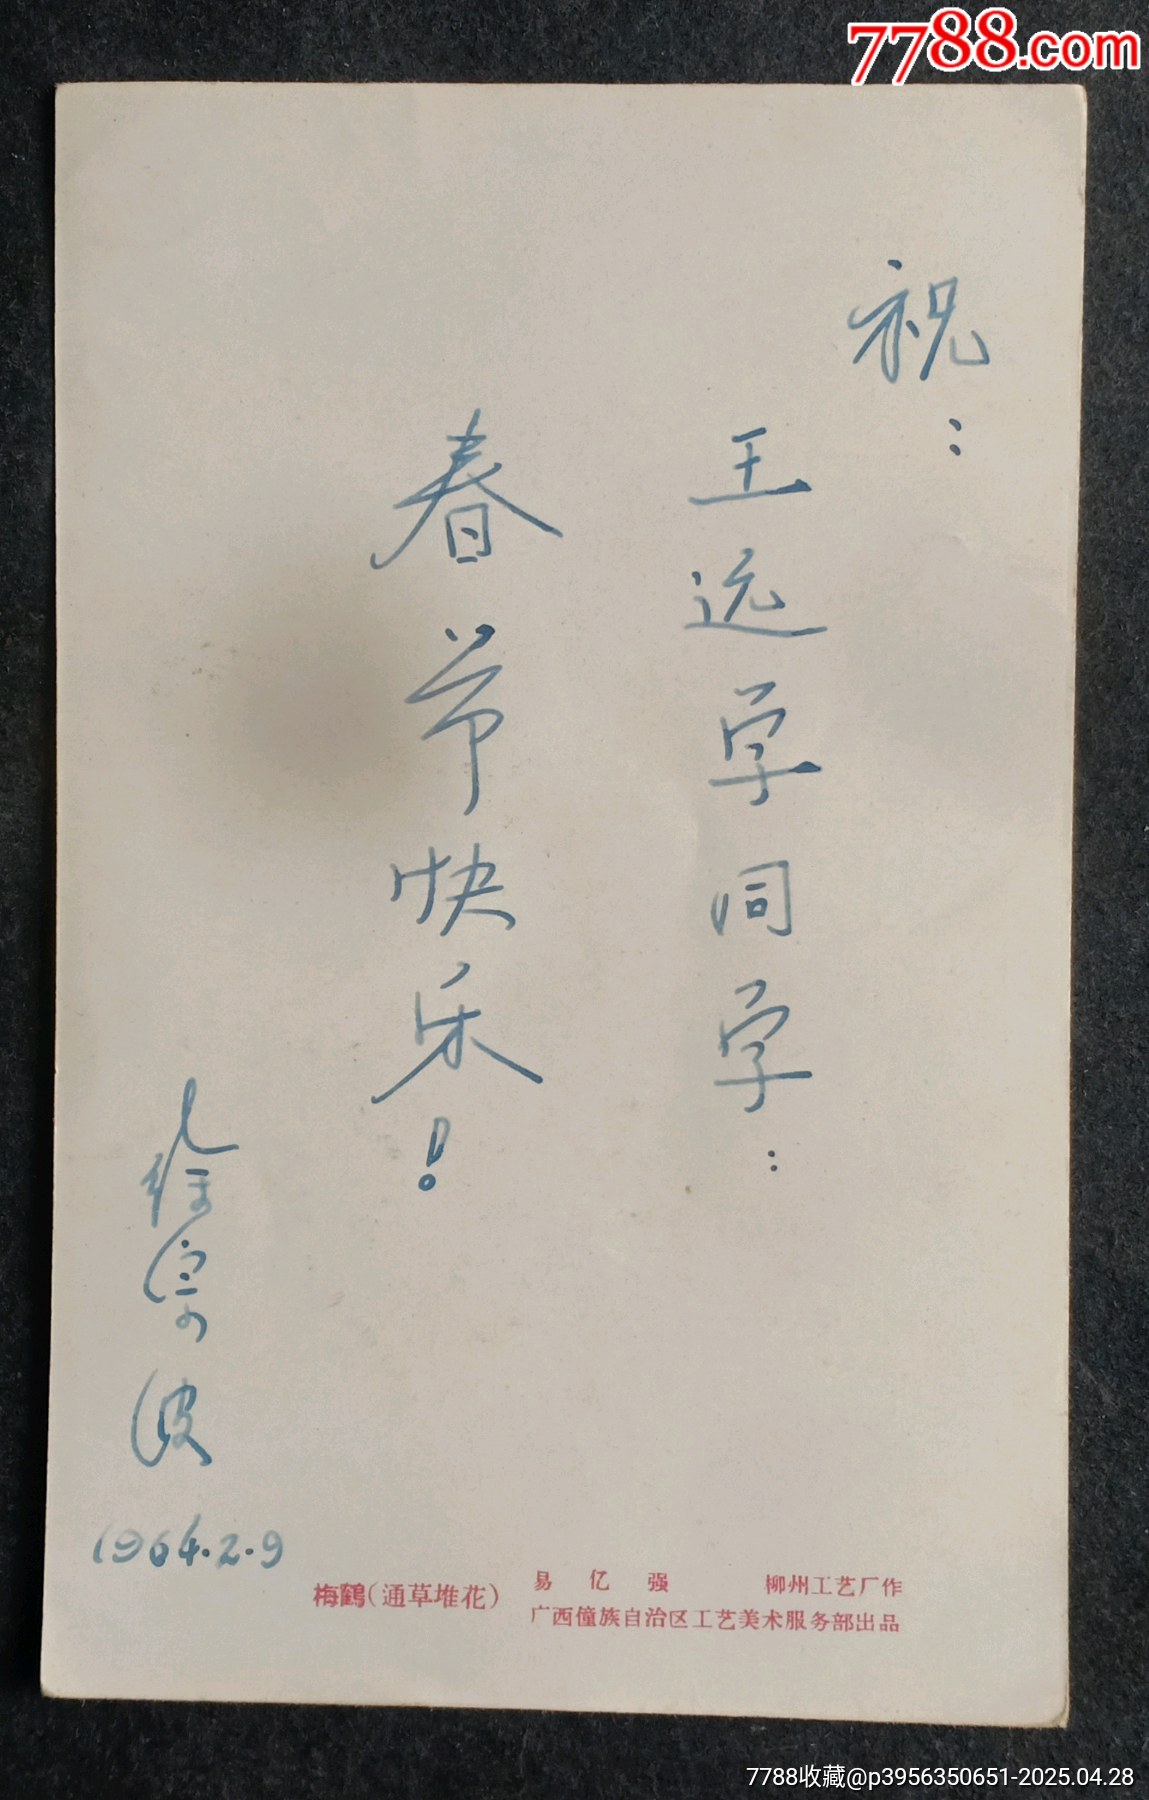 7788.com
祝：
王远学同学：
春节快乐！
波
1964.2.9
梅鶴（通草堆花）
易亿强 柳州工艺厂作
广西僮族自治区工艺美术服务部出品
7788收藏@p3956350651-2025.04.28